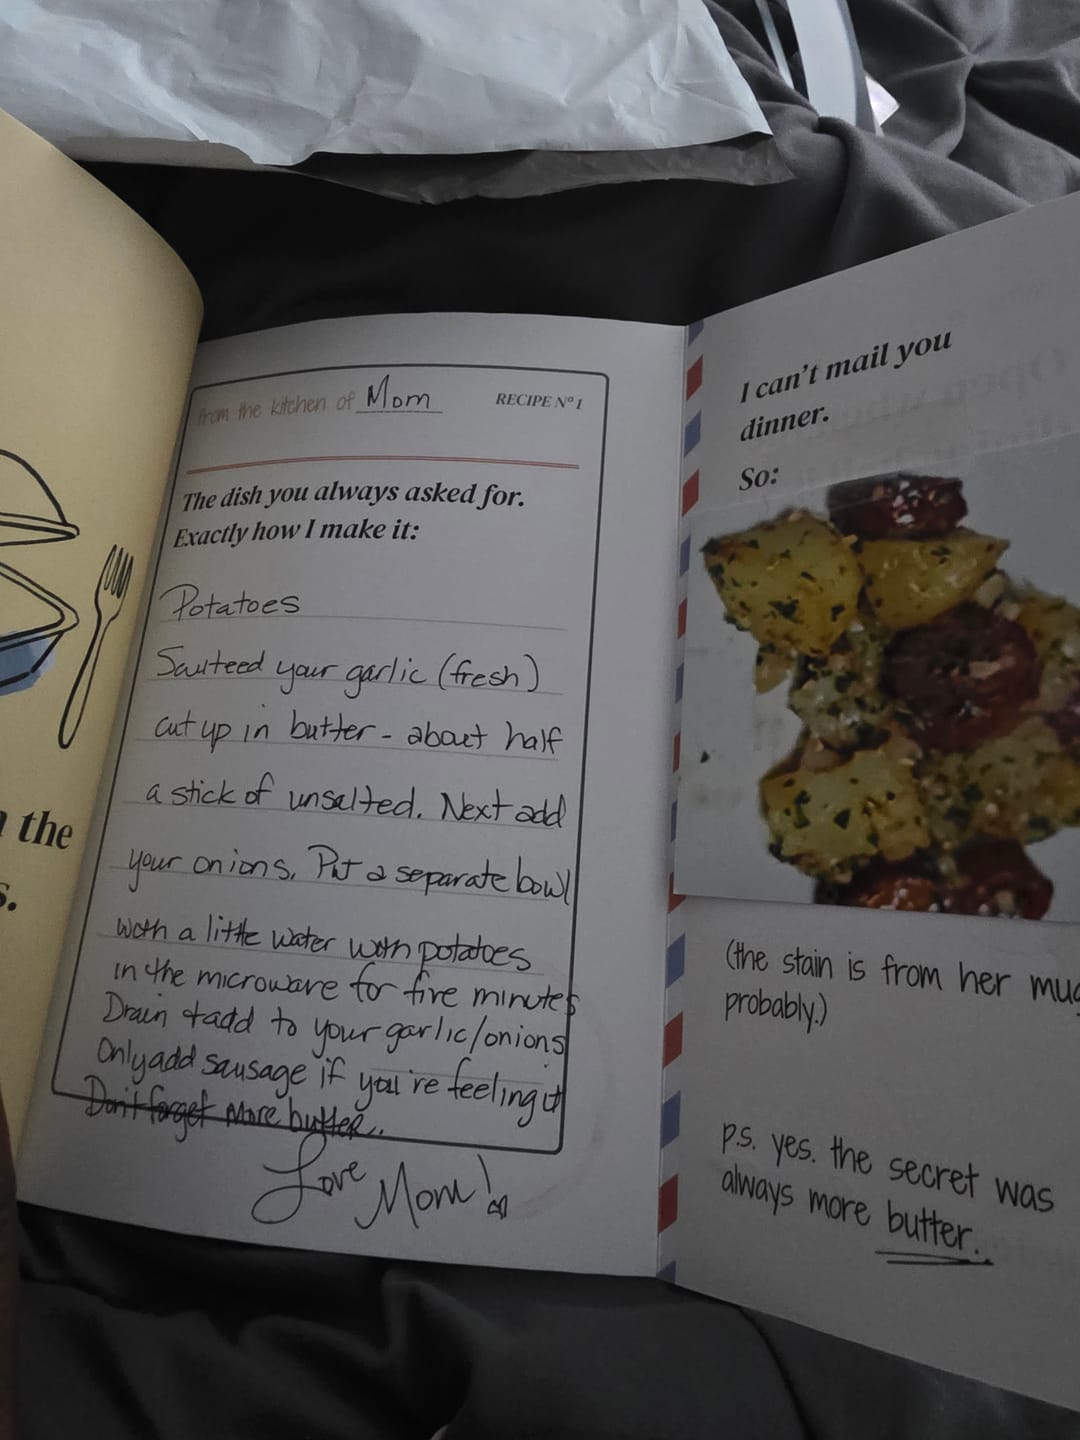 the
s.
from the kitchen of Mom
RECIPE Nº1
The dish you always asked for.
Exactly how I make it:
Potatoes
Sauteed your garlic (fresh)
cut up in butter - about half
a stick of unsalted. Next add
your onions. Put a separate bowl
with a little water with potatoes
in the microwave for five minutes
Drain +add to your garlic/onions
Only add sausage if you're feeling it
Don't forget more butter..
Love Mom!
I can't mail you
dinner.
So:
(the stain is from her mug
probably.)
p.s. yes. the secret was
always more butter.